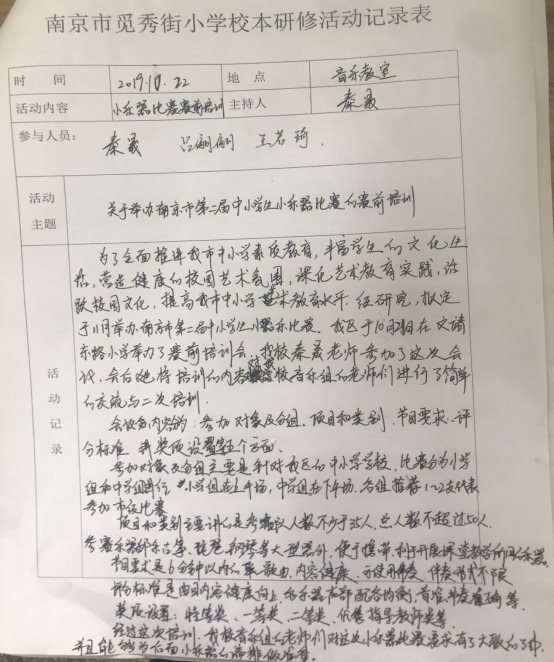 南京市觅秀街小学校本研修活动记录表
时 间 2019.10.22 地 点 音乐教室
活动内容 小乐器比赛赛前培训 主持人 秦晟
参与人员：
秦晟 吕俐俐 王若琦.
活动主题 关于举办南京市第二届中小学生小乐器比赛的赛前培训
活动记录
为了全面推进我市中小学素质教育，丰富学生的文化生
活，营造健康的校园艺术氛围，深化艺术教育实践，活
跃校园文化，提高我市中小学艺术教育水平. 经研究，拟定
于11月举办南京市第二届中小学生小乐器比赛. 我区于10月 在文靖
东路小学举办了赛前培训会，我校秦晟老师参加了这次会
议，会后她将培训的内容 校音乐组的老师们进行了简单
的交流与二次培训.
会议内容为：参加对象及分组、项目和类别、节目要求、评
分标准 和奖项设置等五个方面.
参加对象及分组主要是针对我区的中小学学校，比赛分为小学
组和中学组进行，小学组在上午场，中学组在下午场，各组推荐1-2支代表
参加市级比赛
项目和类别主要讲的是参赛 人数不少于35人，总人数不超过50人.
参赛乐器除古筝、琵琶、钢琴等大型器外，便于携带，利于开展课堂教学的小乐器.
节目要求是6分钟以内的 歌曲，内容健康，可使用伴奏 伴奏形式不限
评分标准是曲目内容健康向上，各乐器声部配合均衡，音准节奏准确等.
奖项设置：特等奖、一等奖、二等奖、优秀指导教师奖等.
经过这次培训，我校音乐组的老师们对这次小乐器比赛要求有了大致的了解，
并且能够为后面小乐器的排练做准备.